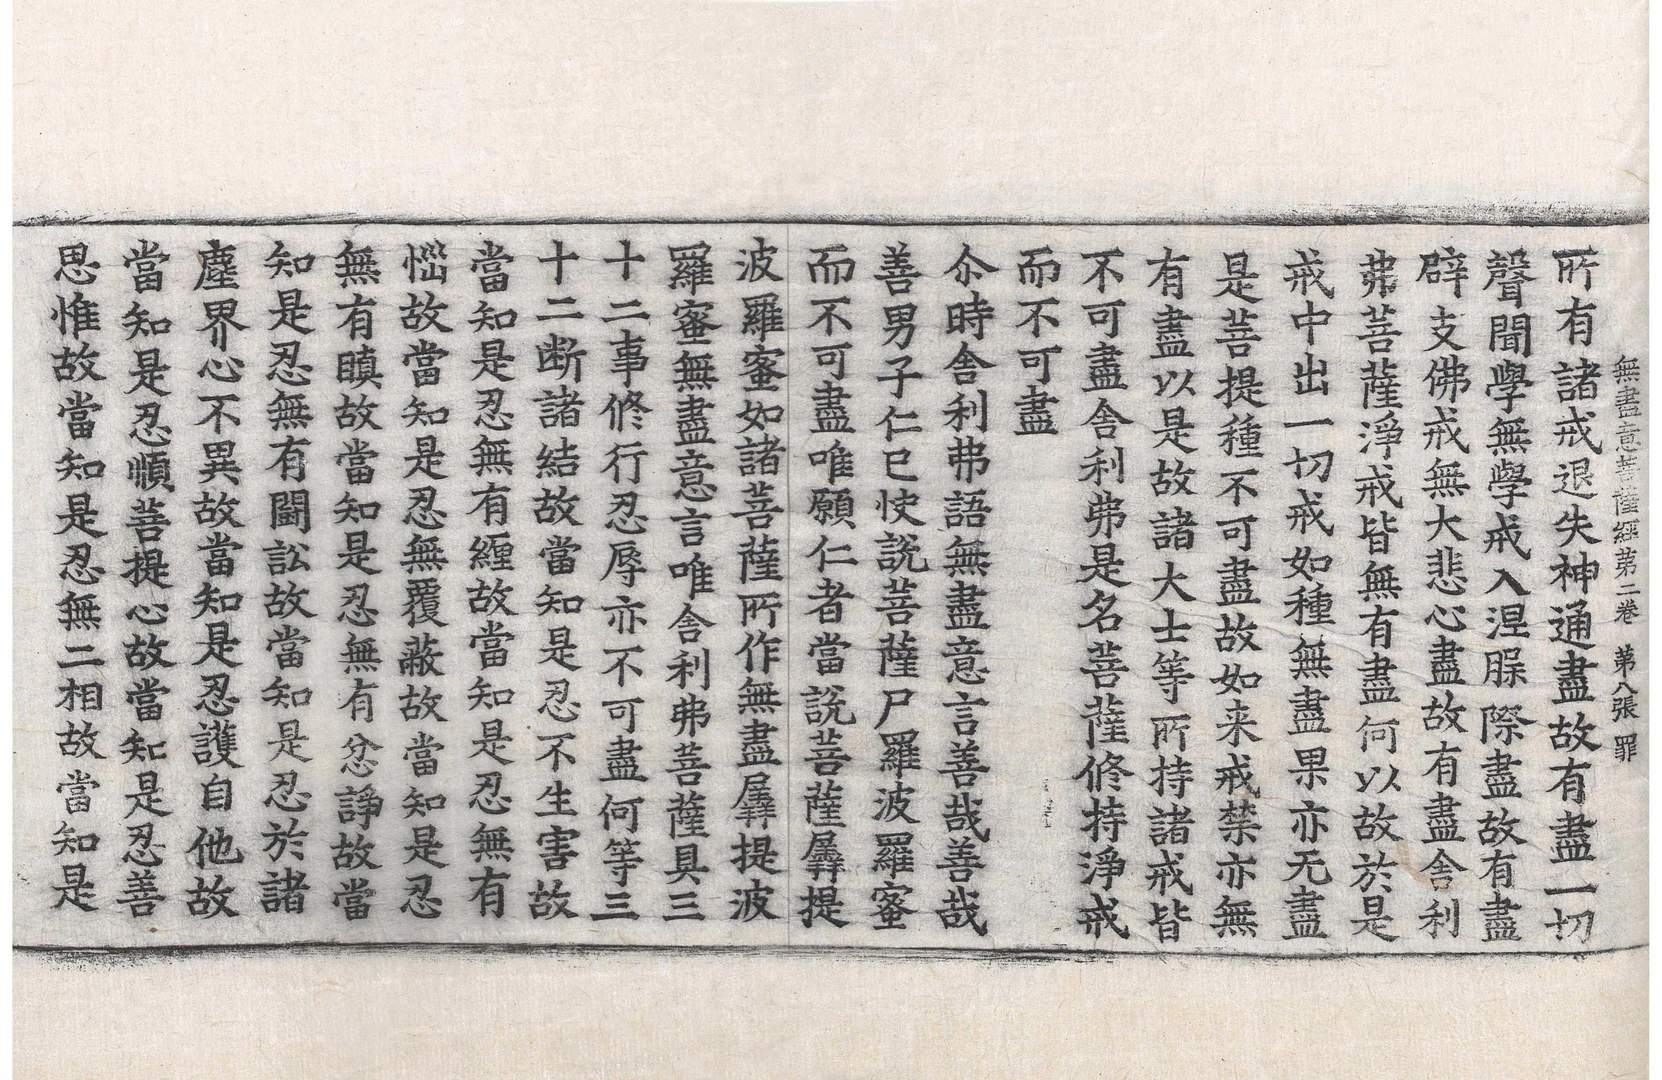 無盡意菩薩經第二卷 第八張 罪
所有諸戒退失神通盡故有盡一切
聲聞學無學戒入涅𣵀際盡故有盡
辟支佛戒無大悲心盡故有盡舍利
弗菩薩淨戒皆無有盡何以故於是
戒中出一切戒如種無盡果亦无盡
是菩提種不可盡故如来戒禁亦無
有盡以是故諸大士等所持諸戒皆
不可盡舍利弗是名菩薩修持淨戒
而不可盡
尒時舍利弗語無盡意言善哉善哉
善男子仁已快說菩薩尸羅波羅蜜
而不可盡唯願仁者當說菩薩羼提
波羅蜜如諸菩薩所作無盡羼提波
羅蜜無盡意言唯舍利弗菩薩具三
十二事修行忍辱亦不可盡何等三
十二断諸結故當知是忍不生害故
當知是忍無有纏故當知是忍無有
惱故當知是忍無覆蔽故當知是忍
無有瞋故當知是忍無有忿諍故當
知是忍無有鬪訟故當知是忍於諸
塵界心不異故當知是忍護自他故
當知是忍順菩提心故當知是忍善
思惟故當知是忍無二相故當知是